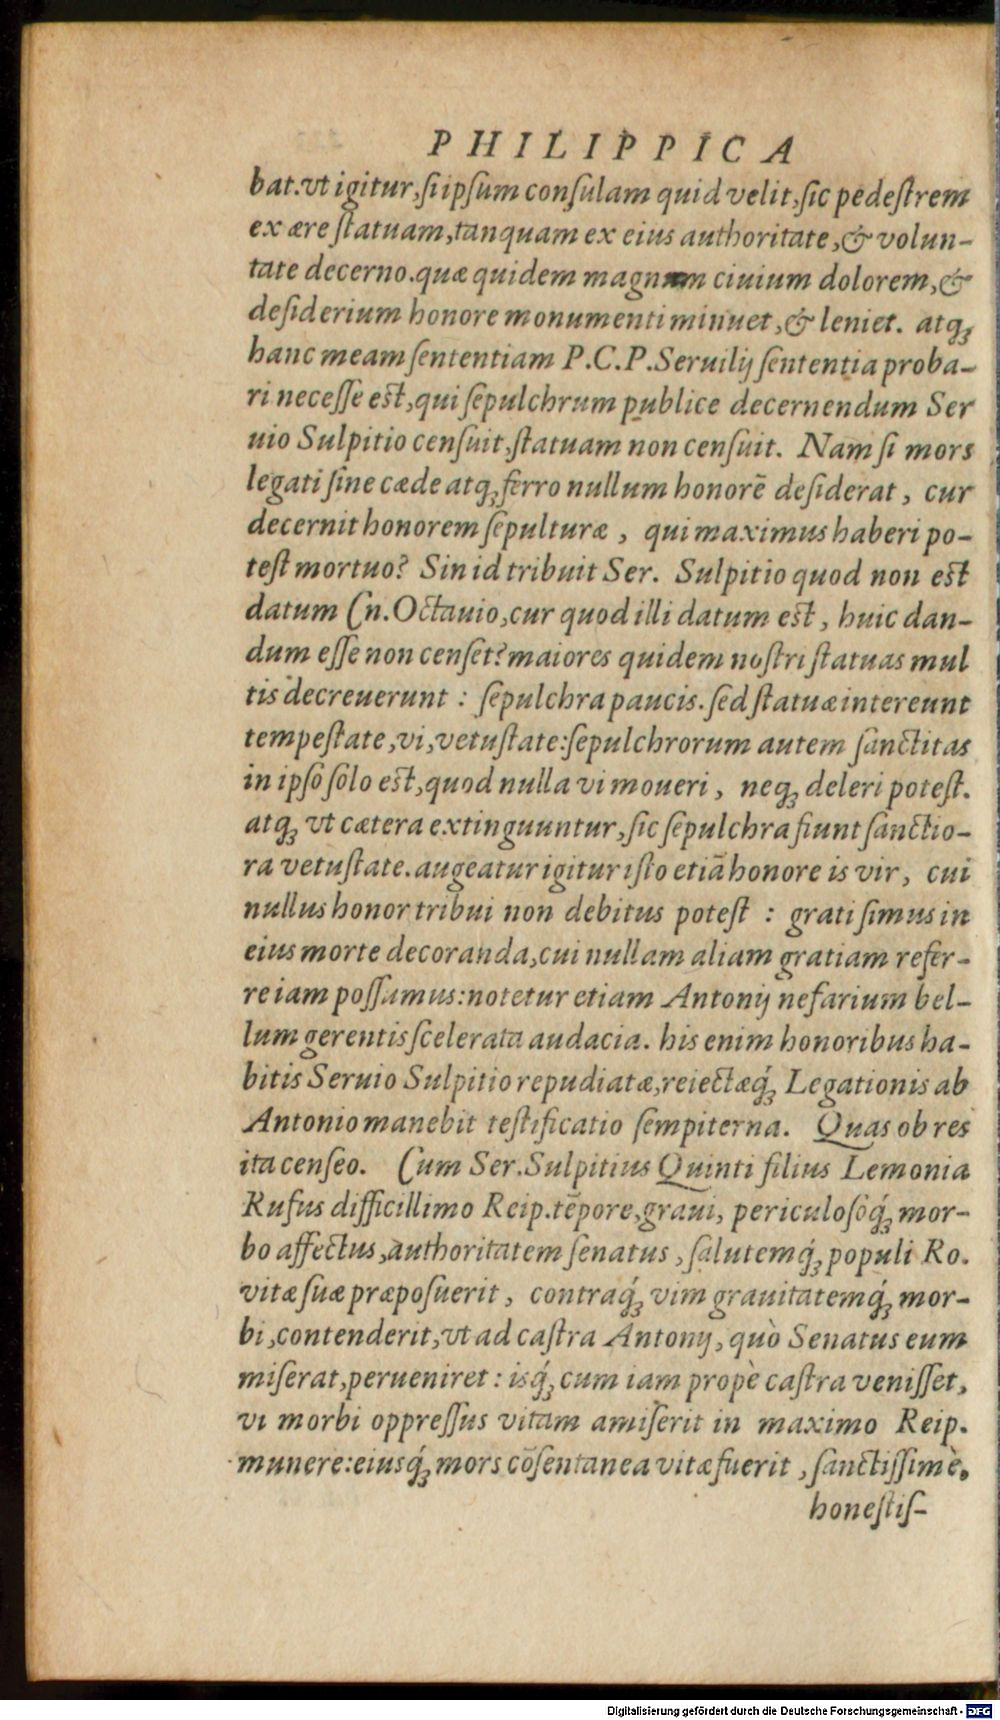 PHILIPPICA
bat. vt igitur, si ipsum consulam quid velit, sic pedestrem
ex ære statuam, tanquam ex eius authoritate, & volun-
tate decerno. quæ quidem magnum ciuium dolorem, &
desiderium honore monumenti minuet, & leniet. atq₃
hanc meam sententiam P.C.P. Seruilij sententia proba-
ri necesse est, qui sepulchrum publice decernendum Ser
uio Sulpitio censuit, statuam non censuit. Nam si mors
legati sine cæde atq₃ ferro nullum honorē desiderat, cur
decernit honorem sepulturæ, qui maximus haberi po-
test mortuo? Sin id tribuit Ser. Sulpitio quod non est
datum Cn. Octauio, cur quod illi datum est, huic dan-
dum esse non censet? maiores quidem nostri statuas mul
tis decreuerunt: sepulchra paucis. sed statuæ intereunt
tempestate, vi, vetustate: sepulchrorum autem sanctitas
in ipso solo est, quod nulla vi moueri, neq₃ deleri potest.
atq₃ vt cætera extinguuntur, sic sepulchra fiunt sanctio-
ra vetustate. augeatur igitur isto etiā honore is vir, cui
nullus honor tribui non debitus potest: grati simus in
eius morte decoranda, cui nullam aliam gratiam refer-
re iam possumus: notetur etiam Antonij nefarium bel-
lum gerentis scelerata audacia. his enim honoribus ha-
bitis Seruio Sulpitio repudiatæ, reiectæq́₃ Legationis ab
Antonio manebit testificatio sempiterna. Quas ob res
ita censeo. Cum Ser. Sulpitius Quinti filius Lemonia
Rufus difficillimo Reip. tēpore, graui, periculosóq́₃ mor-
bo affectus, authoritatem senatus, salutemq́₃ populi Ro.
vitæ suæ præposuerit, contraq́₃ vim grauitatemq́₃ mor-
bi, contenderit, vt ad castra Antonij, quò Senatus eum
miserat, perueniret: isq́₃ cum iam propè castra venisset,
vi morbi oppressus vitam amiserit in maximo Reip.
munere: eiusq́₃ mors cōsentanea vitæ fuerit, sanctissimè,
honestis-
Digitalisierung gefördert durch die Deutsche Forschungsgemeinschaft - DFG